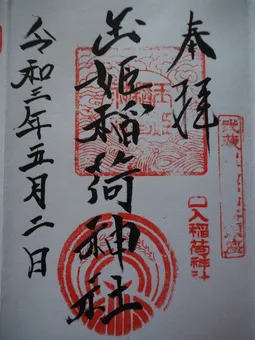 奉拝
出姫稲荷神社
令和三年五月二日
入稲荷神社